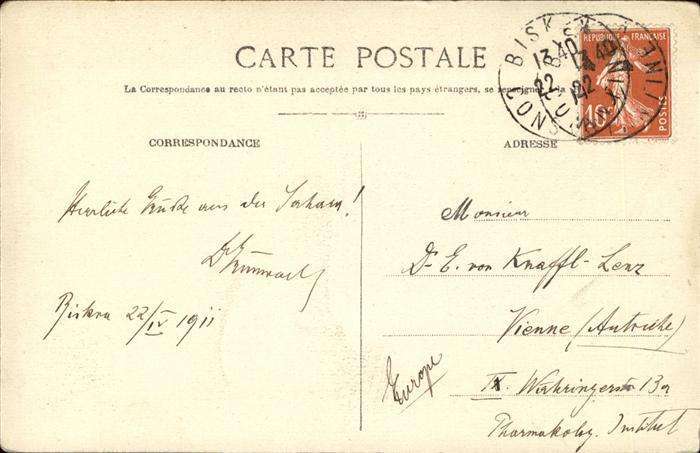 CARTE POSTALE
La Correspondance au recto n'étant pas acceptée par tous les pays étrangers, se renseigner à la
CORRESPONDANCE
Herrliche Grüße aus der Sahara!
Biskra 22/IV 1911
ADRESSE
Monsieur
Dr E. von Knaffl-Lenz
Vienne (Autriche)
Europe
IX. Währingerstr 13a
Pharmakolog. Institut
BISKRA
CONSTANTINE
13 40
22
REPUBLIQUE FRANÇAISE
10c
POSTES